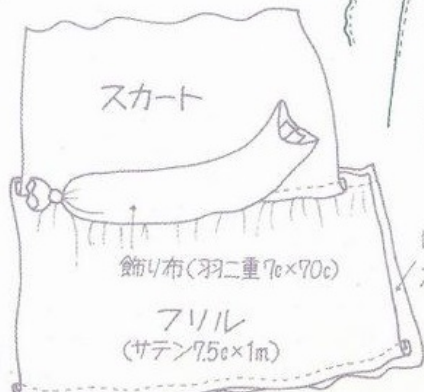 スカート
飾り布(羽二重7c×70c)
フリル
(サテン7.5c×1m)